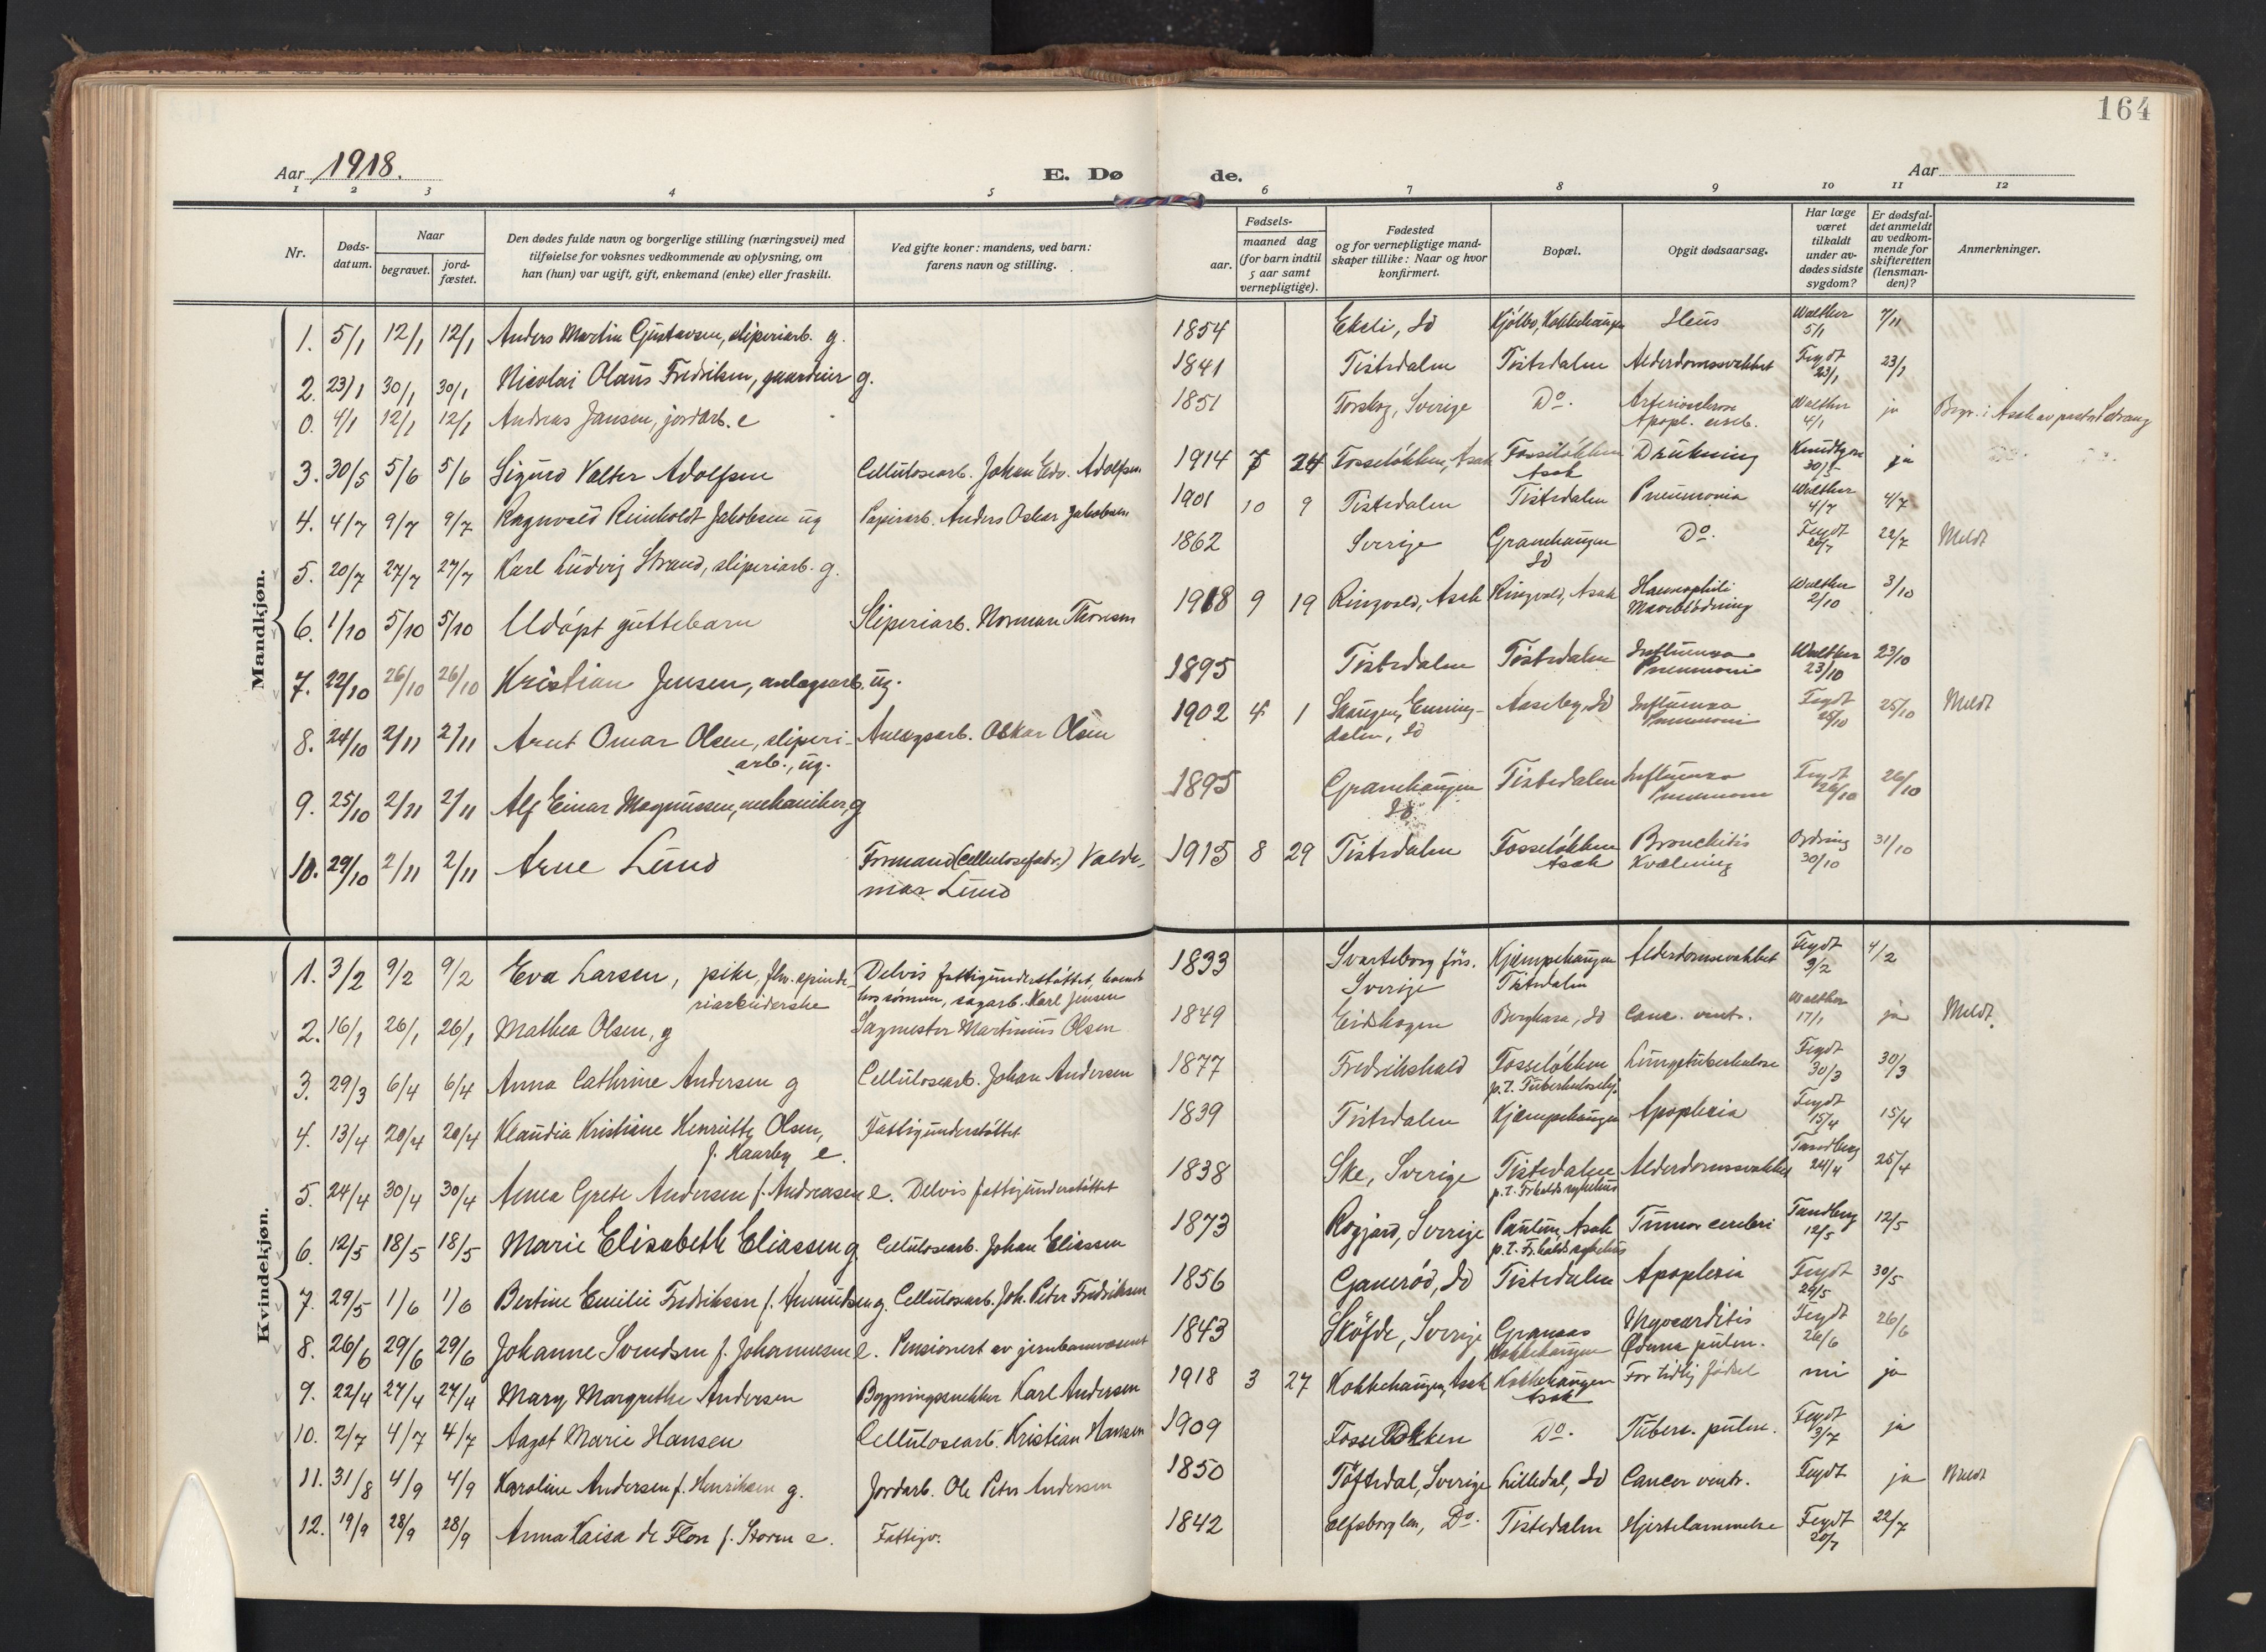 164
Aar 1918.
E. Døde.
Aar
1 2 3 4 5 6 7 8 9 10 11 12
Nr.
Døds-datum.
Naar
begravet.
jord-fæstet.
Den dødes fulde navn og borgerlige stilling (næringsvei) med
tilføielse for voksnes vedkommende av oplysning, om
han (hun) var ugift, gift, enkemand (enke) eller fraskilt.
Ved gifte koner: mandens, ved barn:
farens navn og stilling.
Fødsels-
aar.
maaned dag
(for barn indtil
5 aar samt
vernepligtige).
Fødested
og for vernepligtige mand-
skaper tillike: Naar og hvor
konfirmert.
Bopæl.
Opgit dødsaarsag.
Har læge
været
tilkaldt
under av-
dødes sidste
sygdom?
Er dødsfal-
det anmeldt
av vedkom-
mende for
skifteretten
(lensman-
den)?
Anmerkninger.
Mandkjøn.
1. 5/1 12/1 12/1 Anders Martin Gustavsen, sliperiarb. g. 1854 Ekeli, Id Kjølbo, Kokkehaugen Ileus Walther 5/1 7/11
2. 23/1 30/1 30/1 Nicolai Olaus Fredriksen, gaardeier g. 1841 Tistedalen Tistedalen Alderdomssvakhet Feydt 23/1 23/1
0. 4/1 12/1 12/1 Andreas Jansen, jordarb. e 1851 Torskog, Sverige Do. Apopl. cereb. Walther 4/1 ja Begr. i Asak av pastor
3. 30/5 5/6 5/6 Sigurd Valter Adolfsen Cellulosearb. Johan Edv. Adolfsen 1914 7 24 Fosseløkken, Asak Fosseløkken Asak Drukning Knudtzon 30/5 ja
4. 4/7 9/7 9/7 Ragnvald Reinholdt Jakobsen ug Papirarb. Anders Oskar Jakobsen 1901 10 9 Tistedalen Tistedalen Pneumonia Walther 4/7 4/7
5. 20/7 27/7 27/7 Karl Ludvig Strand, sliperiarb. g. 1862 Sverige Granehaugen Id Do. Feydt 20/7 22/7 Meldt
6. 1/10 5/10 5/10 Udøpt guttebarn Sliperiarb. Norman Thoresen 1918 9 19 Ringvold, Asak Ringvold, Asak Haemophili Maveblødning Walther 2/10 3/10
7. 22/10 26/10 26/10 Kristian Jensen, anlægsarb. ug. 1895 Tistedalen Tistedalen Influenza Pneumoni Walther 23/10 23/10
8. 24/10 2/11 2/11 Arnt Omar Olsen, sliperi-arb., ug. Anlægsarb. Oskar Olsen 1902 4 1 Skaugen, Enning-dalen, Id Aaseby, Id Influenza Pneumoni Feydt 25/10 25/10 Meldt
9. 25/10 2/11 2/11 Alf Einar Magnussen, mekaniker, g 1895 Granehaugen Id Tistedalen Influenza Pneumoni Feydt 26/10 26/10
10. 29/10 2/11 2/11 Arne Lund Formand (Cellulosefabr.) Valde-mar Lund 1915 8 29 Tistedalen Fosseløkken Asak Bronchitis Kvælning Ording 30/10 31/10
Kvindekjøn.
1. 3/2 9/2 9/2 Eva Larsen, pike, fhv. spinde-riarbeiderske Delvis fattigunderstøttet, boende hos sønnen, sagarb. Karl Jensen 1833 Svarteborg förs. Sverige Kjæmpehaugen Tistedalen Alderdomssvakhet Feydt 3/2 4/2
2. 16/1 26/1 26/1 Mathea Olsen, g Sagmester Martinius Olsen 1849 Eidskogen Id Canc. ventr. Walther 17/1 ja Meldt.
3. 29/3 6/4 6/4 Anna Cathrine Andersen g Cellulosearb. Johan Andersen 1877 Fredrikshald Fosseløkken p.t. Tuberkulosehj. Lungetuberkulose Feydt 30/3 30/3
4. 13/4 20/4 20/4 Klaudia Kristiane Henriette Olsen, f. Kaarby e. Fattigunderstøttet 1839 Tistedalen Kjæmpehaugen Apoplexia Feydt 15/4 15/4
5. 24/4 30/4 30/4 Anna Grete Andersen f. Andreasen e. Delvis fattigunderstøttet 1838 Ske, Sverige Tistedalen p.t. Frhalds sykehus Alderdomssvakhet Tandberg 24/4 25/4
6. 12/5 18/5 18/5 Marie Elisabeth Eliassen g. Cellulosearb. Johan Eliassen 1873 Sverige Asak p.t. Fr.halds sykehus Tumor cerebri Tandberg 12/5 12/5
7. 29/5 1/6 1/6 Bertine Emilie Fredriksen f. Amundsen g. Cellulosearb. Joh. Peter Fredriksen 1856 Ganerød, Id Tistedalen Apoplexia Feydt 29/5 30/5
8. 26/6 29/6 29/6 Johanne Svendsen f. Johannesen e. Pensionert av jernbanevæsenet 1843 Sköfde, Sverige Granaas Kokkehaugen Myocarditis Ødema pulm. Feydt 26/6 26/6
9. 22/4 27/4 27/4 Mary Margrethe Andersen Bygningssnekker Karl Andersen 1918 3 27 Kokkehaugen, Asak Kokkehaugen Asak For tidlig fødsel nei ja
10. 2/7 4/7 4/7 Aagot Marie Hansen Cellulosearb. Kristian Hansen 1909 Fosseløkken Do. Tuberc. pulm. Feydt 3/7 ja
11. 31/8 4/9 4/9 Karoline Andersen f. Henriksen g. Jordarb. Ole Peter Andersen 1850 Töftedal, Sverige Lilledal, Id Cancer ventr. Feydt ja Meldt
12. 19/9 28/9 28/9 Anna Kaisa de Flon f. Storm e. Fattigv. 1842 Elfsborg len, Do. Tistedalen Hjertelammelse Feydt 20/7 22/7